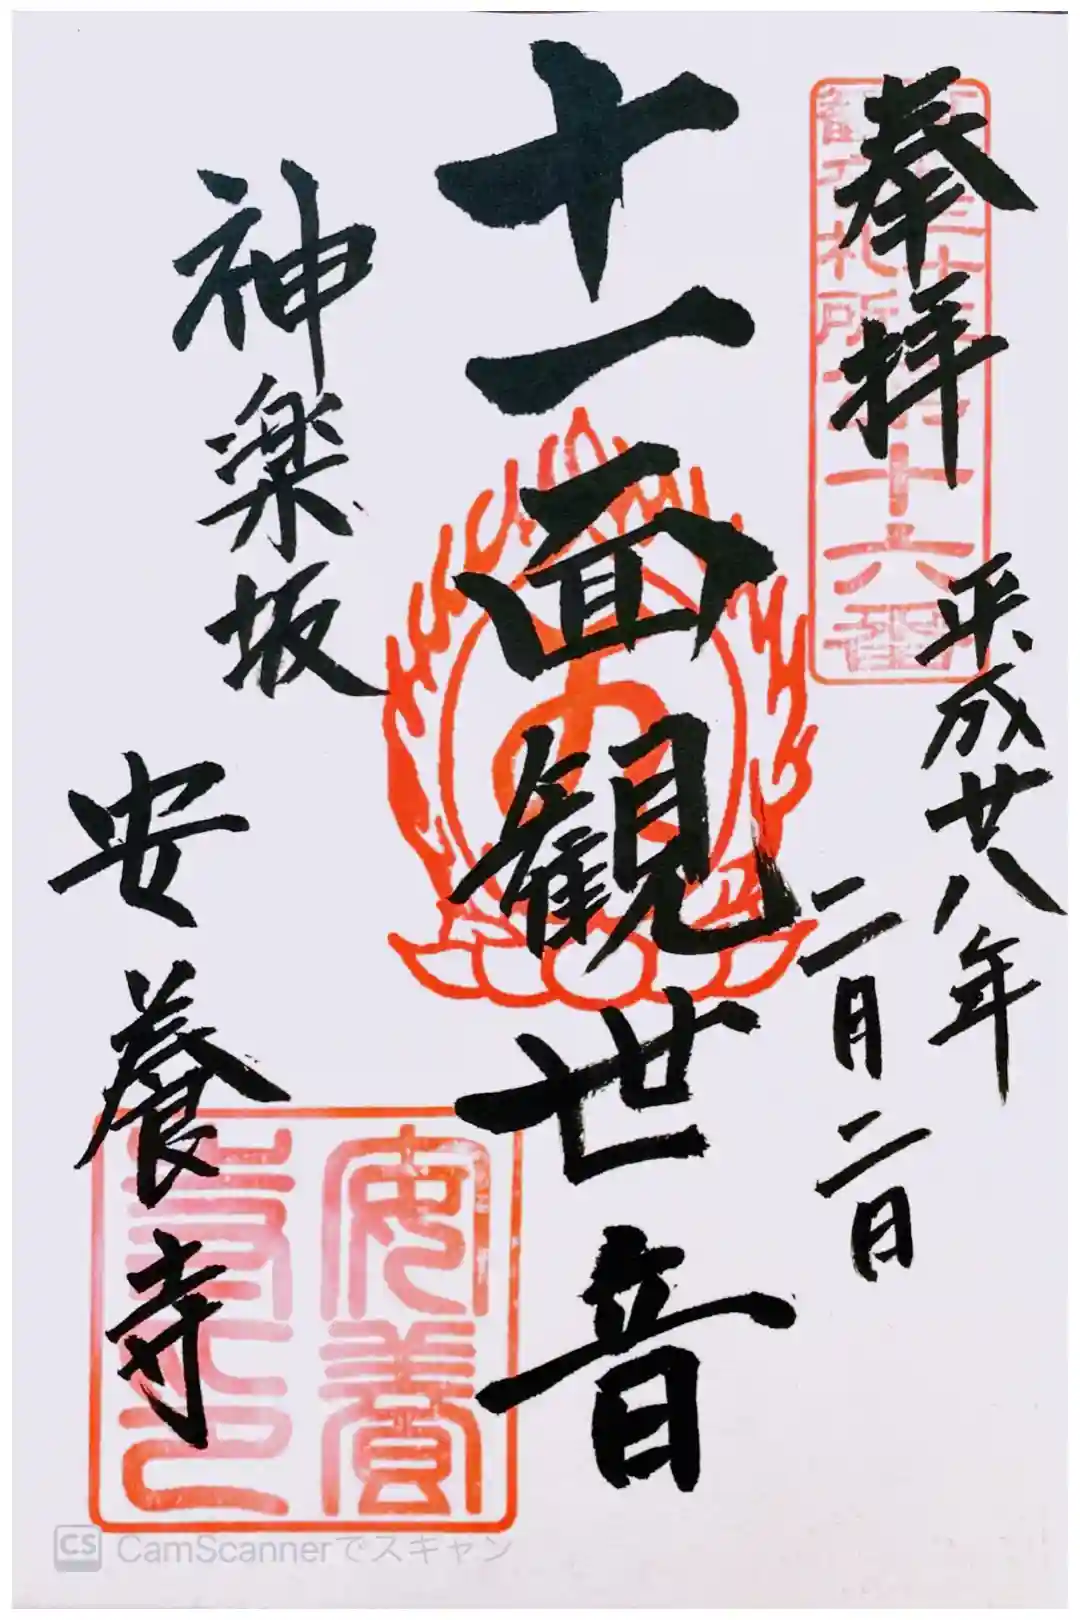 奉拝
平成廿八年
二月二日
十一面観世音
神楽坂
安養寺
札所第十六番
安養
寺之印
CS CamScannerでスキャン